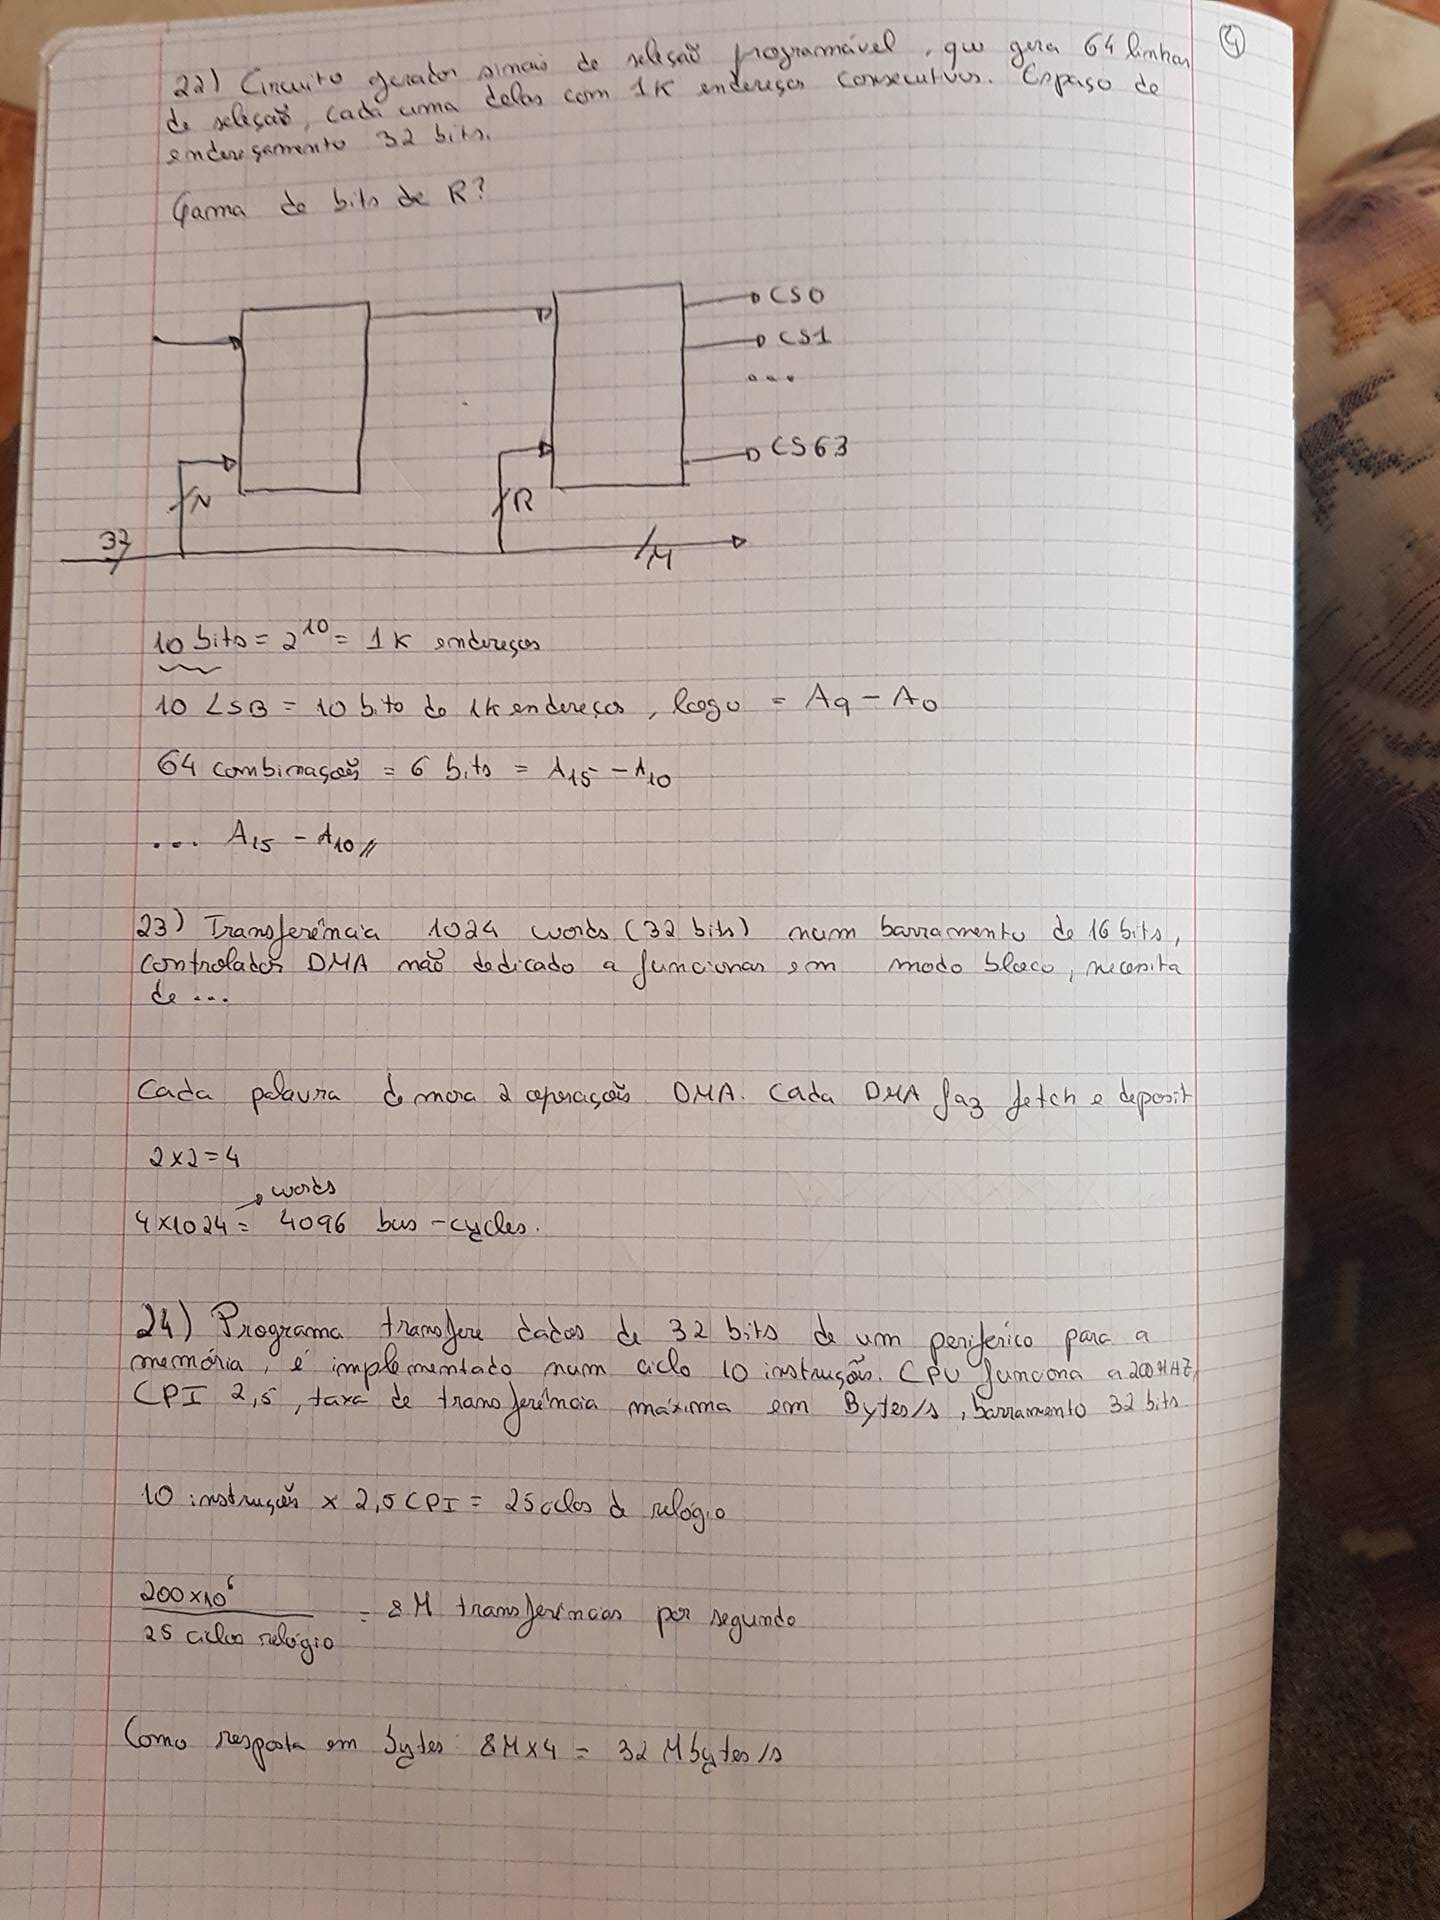 4
22) Circuito gerador sinais de seleção programável, que gera 64 linhas
de seleção, cada uma delas com 1K endereços consecutivos. Espaço de
endereçamento 32 bits.
Gama de bits de R?
CS0
CS1
...
CS63
N
R
32
M
10 bits = 2^10 = 1K endereços
10 LSB = 10 bits de 1K endereços, logo = A9 - A0
64 combinações = 6 bits = A15 - A10
... A15 - A10 //
23) Transferência 1024 words (32 bits) num barramento de 16 bits,
controlador DMA não dedicado a funcionar em modo bloco, necessita
de ...
Cada palavra demora 2 operações DMA. Cada DMA faz fetch e deposit
2x2=4
words
4x1024 = 4096 bus-cycles.
24) Programa transfere dados de 32 bits de um periférico para a
memória, é implementado num ciclo 10 instrução. CPU funciona a 200MHZ,
CPI 2,5, taxa de transferência máxima em Bytes/s, barramento 32 bits.
10 instruções x 2,5 CPI = 25 ciclos de relógio
200x10^6
25 ciclos relógio
= 8 M transferências por segundo
Como resposta em bytes: 8M x 4 = 32 Mbytes/s